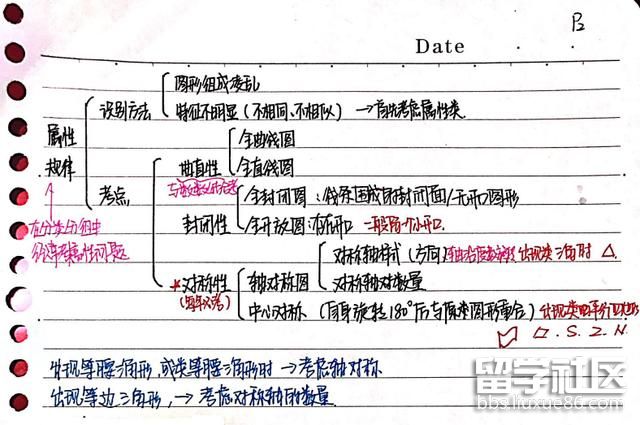 B
Date
图形组成凌乱
识别方法 特征不明显(不相同、不相似) → 首先考虑属性类
属性
规律
全曲线图
曲直性
全直线图
考点
全封闭图:线条围成的封闭面/无开口图形
封闭性
全开放图:有开口 一般留一个小开口
在分类分组中
经常考属性问题
对称轴样式(方向) 出现类三角时 △.
*对称性 轴对称图
对称轴对数量
中心对称(自身旋转180°后与原来图形重合) 出现类平行四边形
▱. S. Z. N.
出现等腰三角形,或类等腰三角形时 → 考虑轴对称
出现等边三角形, → 考虑对称轴的数量
留学社区
bbs.liuxue86.com